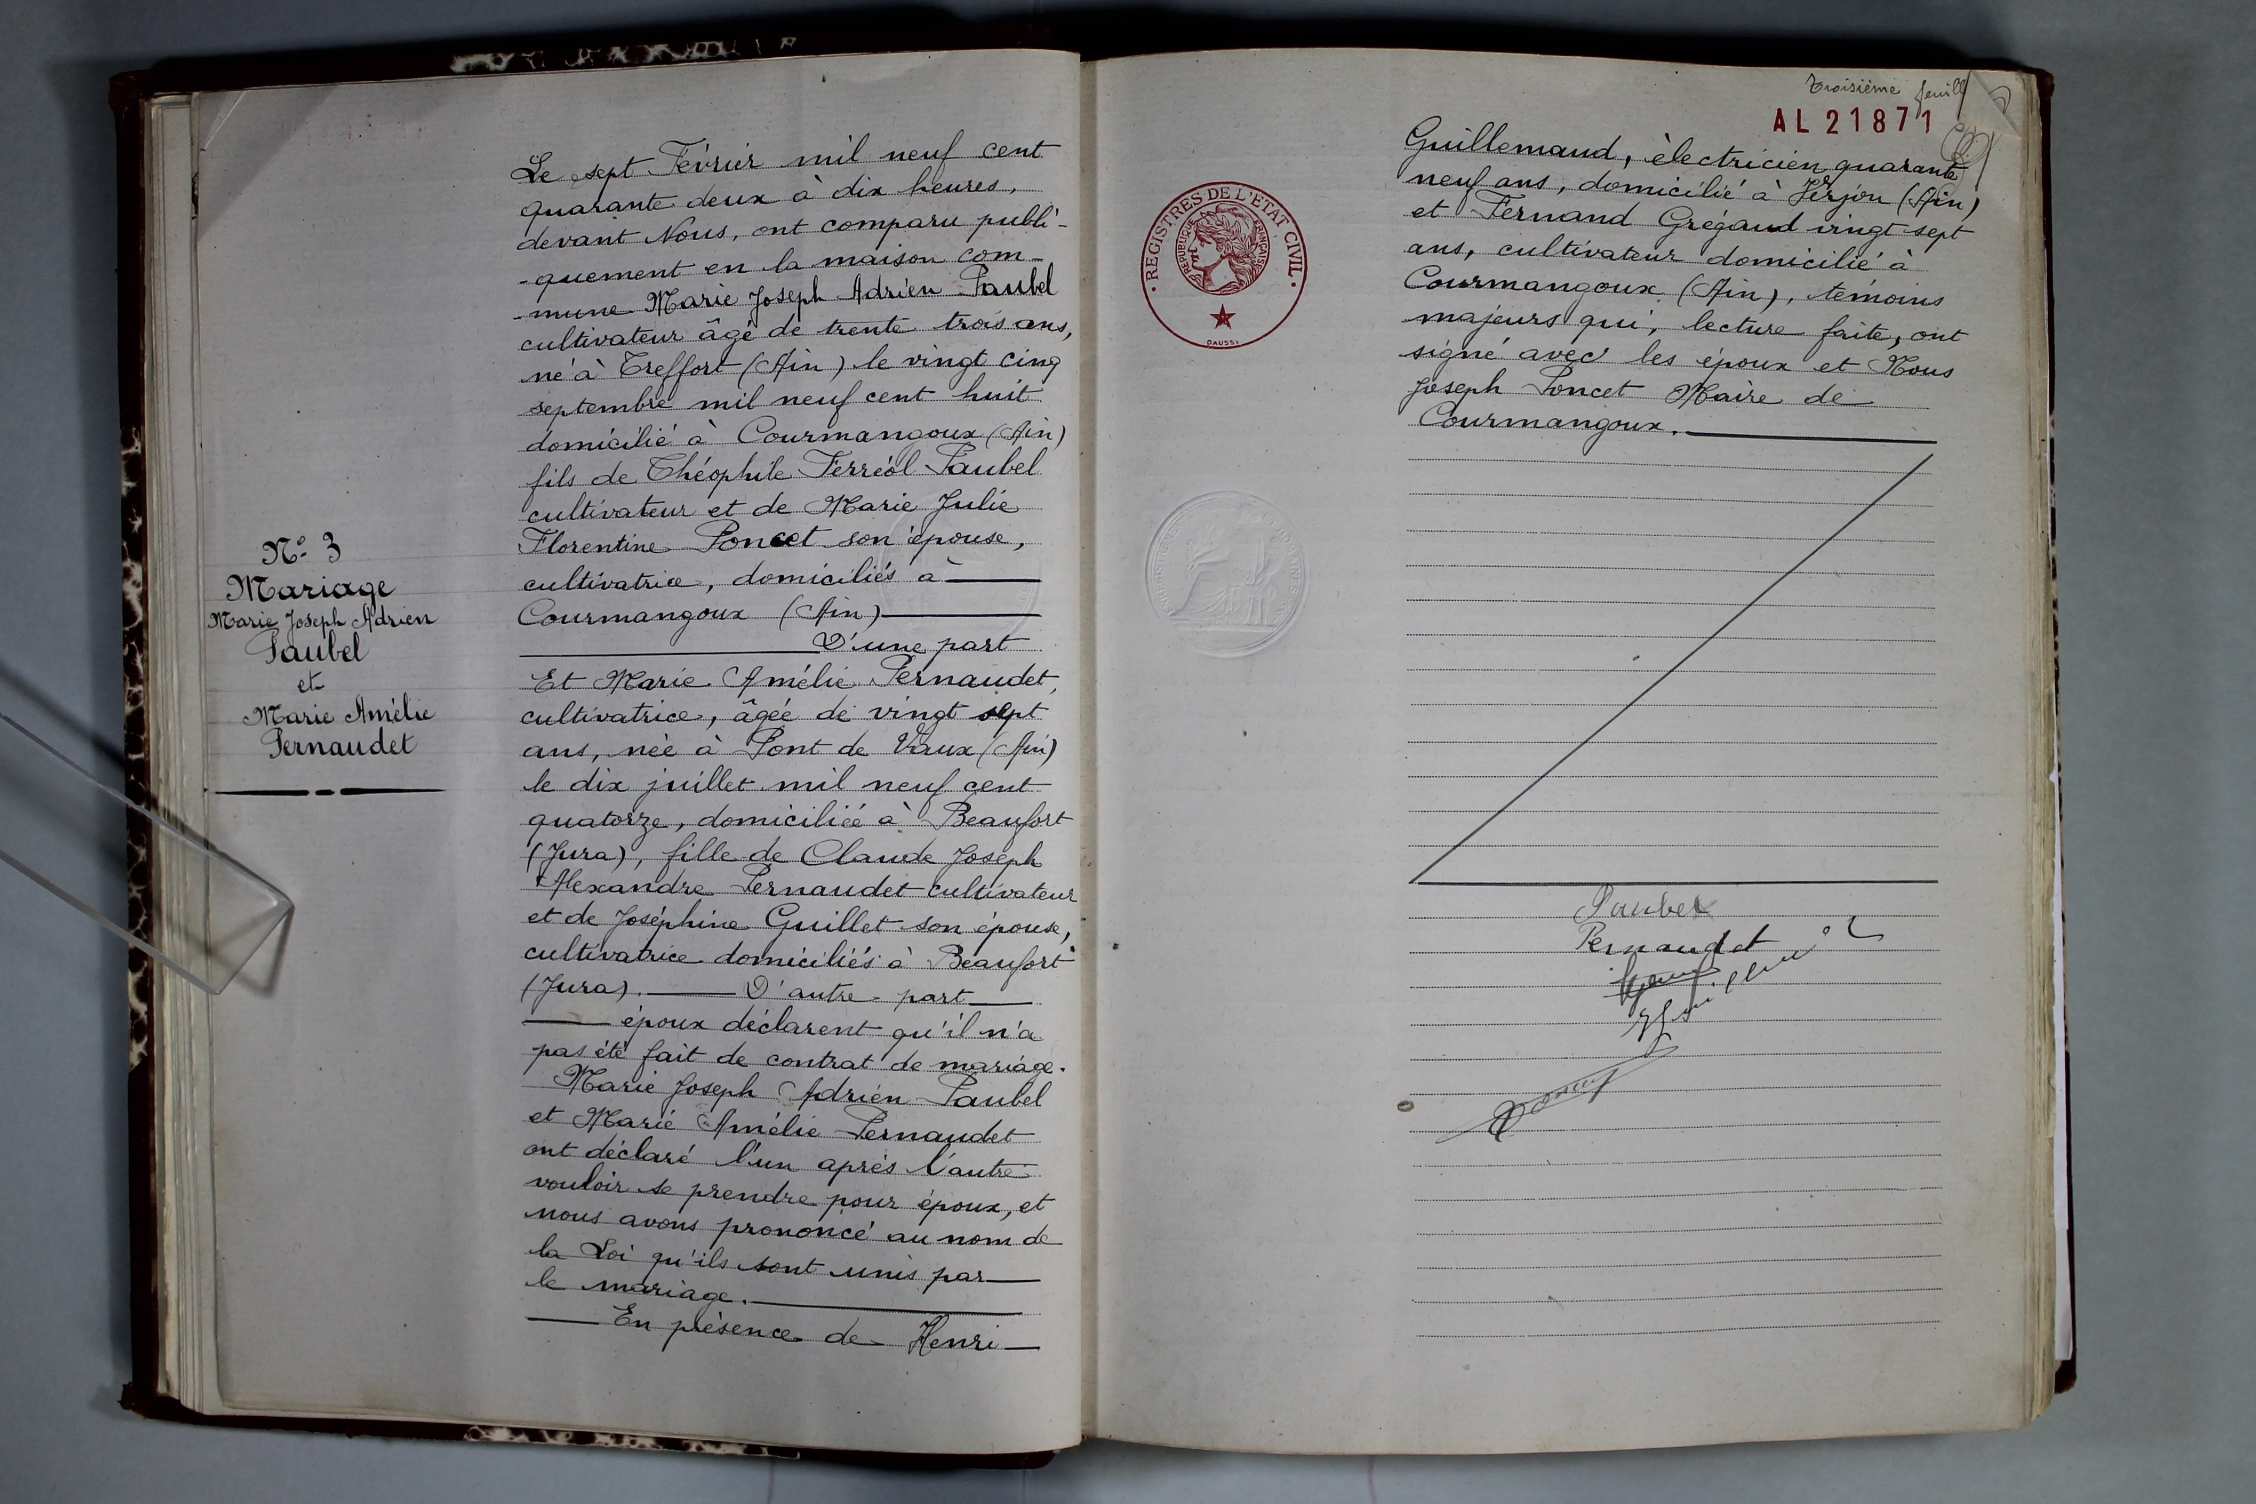 Le sept Février mil neuf cent
quarante deux à dix heures,
devant Nous, ont comparu publi-
-quement en la maison com-
-mune Marie Joseph Adrien Paubel
cultivateur âgé de trente trois ans,
né à Treffort (Ain) le vingt cinq
septembre mil neuf cent huit
domicilié à Courmangoux (Ain)
fils de Théophile Ferréol Paubel
cultivateur et de Marie Julie
Florentine Poncet son épouse,
cultivatrice, domiciliés à
Courmangoux (Ain)
D'une part
Et Marie Amélie Pernaudet,
cultivatrice, âgée de vingt sept
ans, née à Pont de Vaux (Ain)
le dix juillet mil neuf cent
quatorze, domiciliée à Beaufort
(Jura), fille de Claude Joseph
Alexandre Pernaudet cultivateur
et de Joséphine Guillet son épouse,
cultivatrice domiciliés à Beaufort
(Jura). D'autre part
époux déclarent qu'il n'a
pas été fait de contrat de mariage.
Marie Joseph Adrien Paubel
et Marie Amélie Pernaudet
ont déclaré l'un après l'autre
vouloir se prendre pour époux, et
nous avons prononcé au nom de
la Loi qu'ils sont unis par
le mariage.
En présence de Henri
N° 3
Mariage
Marie Joseph Adrien
Paubel
et
Marie Amélie
Pernaudet
Troisième feuill
AL 21871
Guillemaud, électricien quarante
neuf ans, domicilié à Verjon (Ain)
et Fernand Grégaud vingt sept
ans, cultivateur domicilié à
Courmangoux (Ain), témoins
majeurs qui, lecture faite, ont
signé avec les époux et Nous
Joseph Poncet Maire de
Courmangoux.
REGISTRES DE L'ÉTAT CIVIL
RÉPUBLIQUE FRANÇAISE
DAUSSY
Paubel
Pernaudet
Poncet